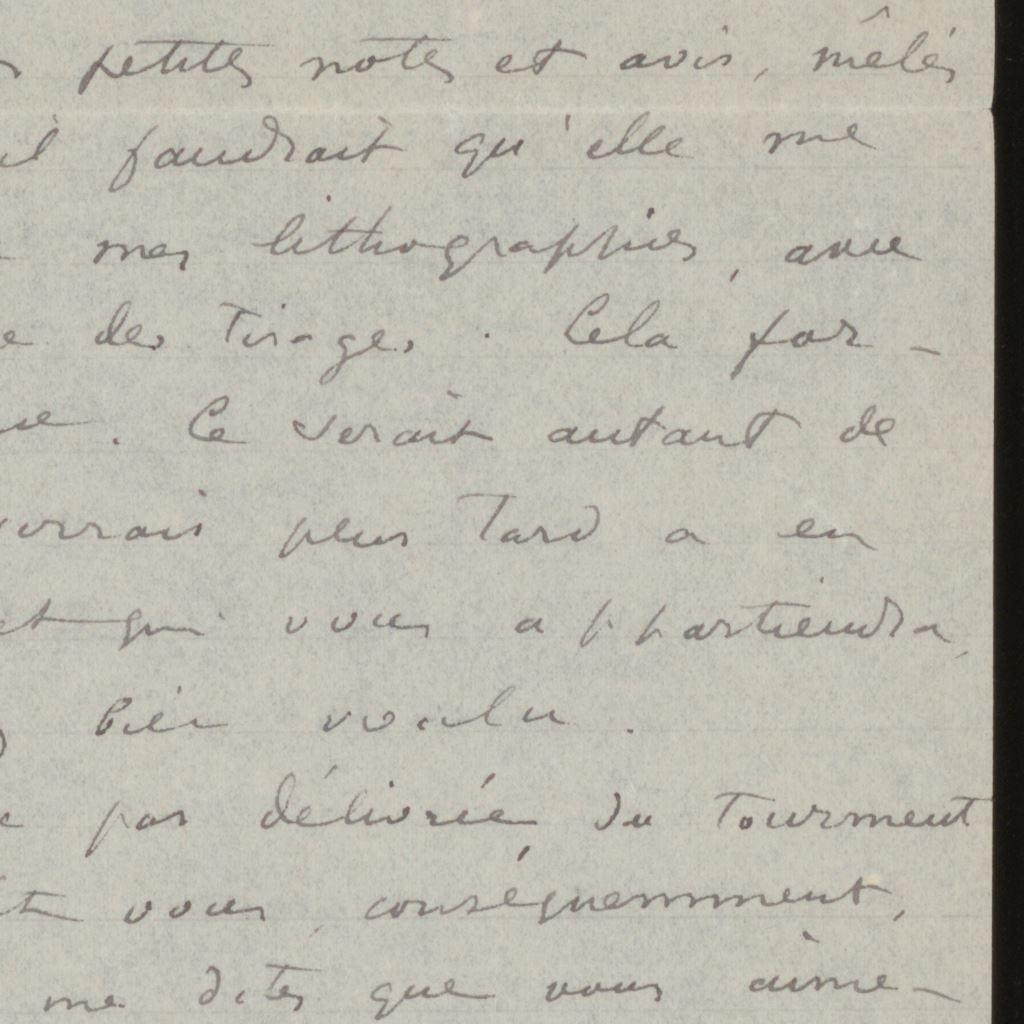 petites notes et avis, mêlés
il faudrait qu'elle me
mes lithographies, avec
des tirages. Cela for-
. Ce serait autant de
plus tard a en
et qui vous appartiendra,
bien voulu.
pas délivrée du tourment
vous, conséquemment,
me dites que vous aime-